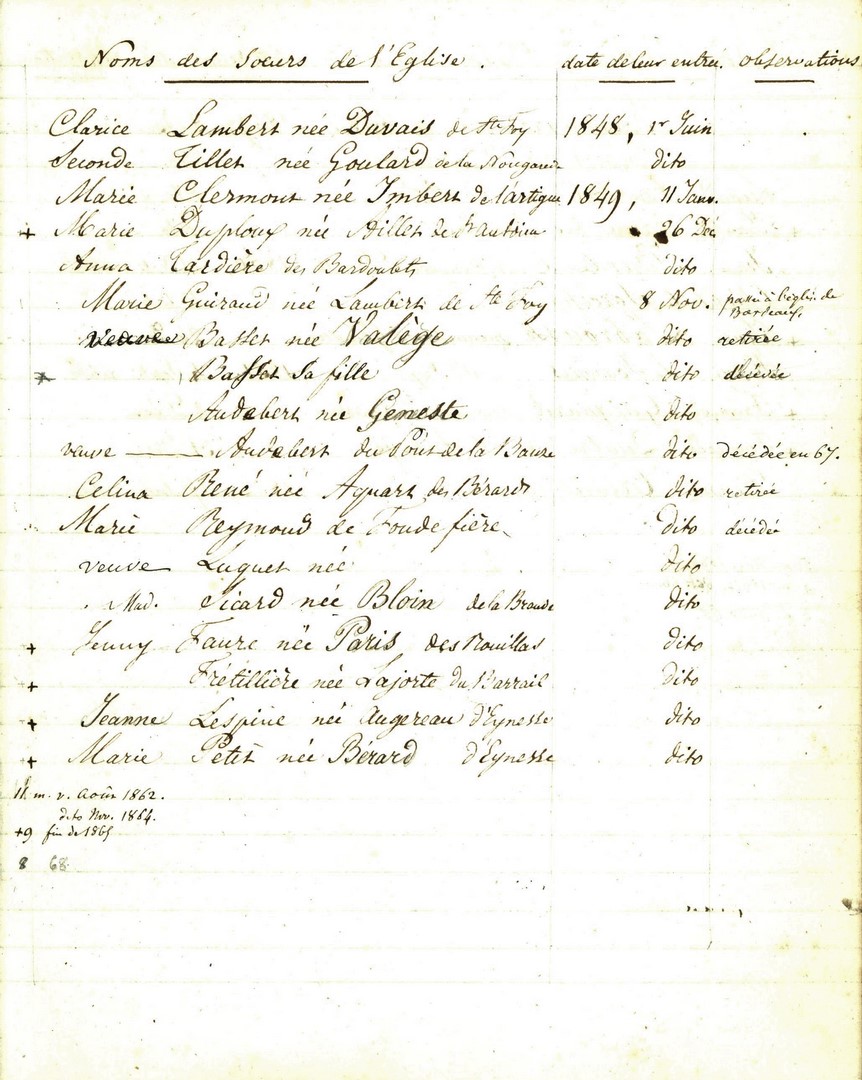 Noms des Soeurs de l'Eglise. date de leur entrée. observations
Clarice Lambert née Duvais de Ste Foy 1848, 1r Juin
Seconde Tillet née Goulard de la dito
Marie Clermont née Imbert de l'artigue 1849, 11 Janv.
+ Marie Duploux née de St 26 Déc
Anna Tardière des Bardoulets dito
Marie Guiraud née Lambert de Ste Foy 8 Nov. passée à l'église de Bordeaux
veuve Basset née Valège dito retirée
Basset Sa fille dito décédée
Audebert née Geneste dito
veuve Audebert du Pont de la Bauze dito décédée en 67.
Celina René née Aquart des Bérards dito retirée
Marie Reymond de Fondefière dito décédée
veuve Luquet née dito
Mad. Sicard née Bloin de la Braude dito
+ Jenny Faure née Paris des Rouillas dito
+ Frétillière née Lajorte du Barrail dito
+ Jeanne Lespine née Augereau d'Eynesse dito
+ Marie Petit née Bérard d'Eynesse dito
11 m. v. Août 1862.
dito Nov. 1864.
+9 fin de 1865
8 68